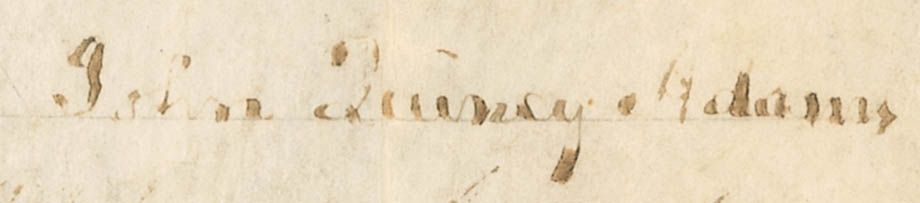 John Quincy Adams